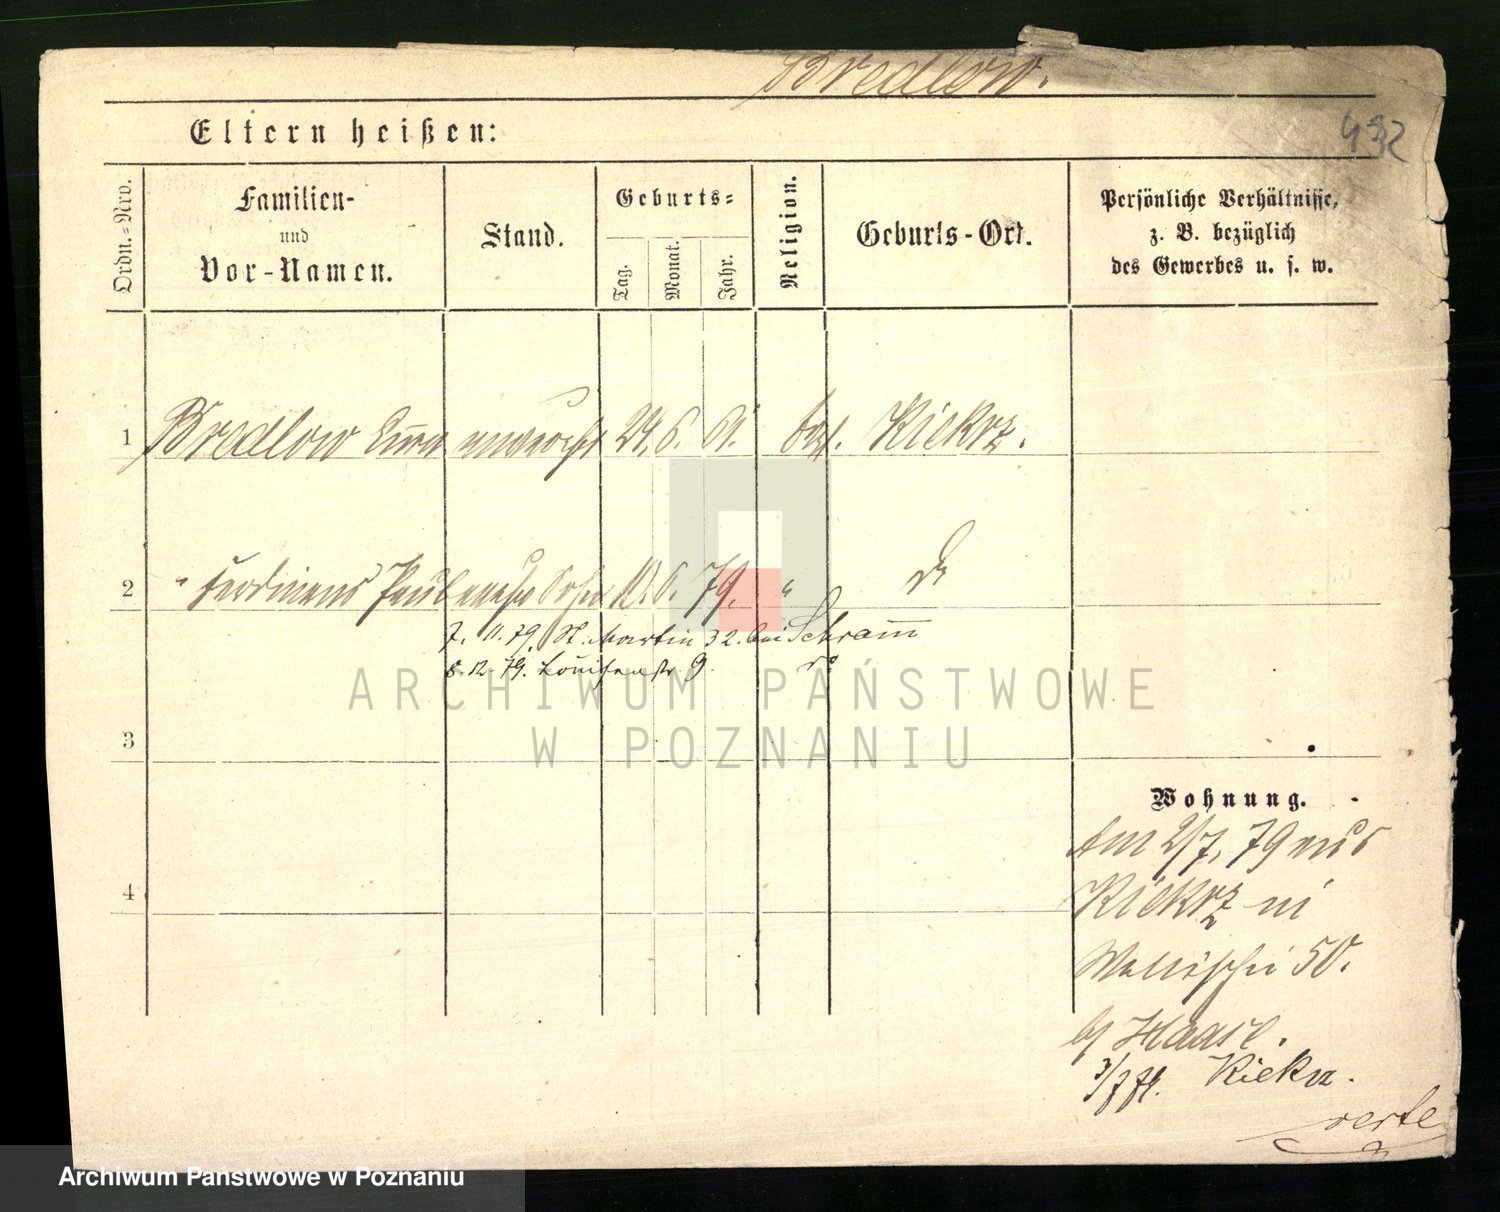 Bredlow.
432
Eltern heißen:
Ordn.-Nro.
Familien-
und
Vor-Namen.
Stand.
Geburts-
Tag.
Monat.
Jahr.
Religion.
Geburts-Ort.
Persönliche Verhältnisse,
z. B. bezüglich
des Gewerbes u. s. w.
1 Bredlow 24. 6. 61. Kiekrz.
2 " Ferdinand Paul Sohn 6. 79. "
7. 11. 79. St. Martin 32. bei Schram̅
8. 12. 79. Louisenstr 9.
3
4
Wohnung.
Am 2/7. 79 aus
Kiekrz in
Wallischei 50.
b/ Haase.
Kiekrz.
verte
ARCHIWUM PAŃSTWOWE
W POZNANIU
Archiwum Państwowe w Poznaniu